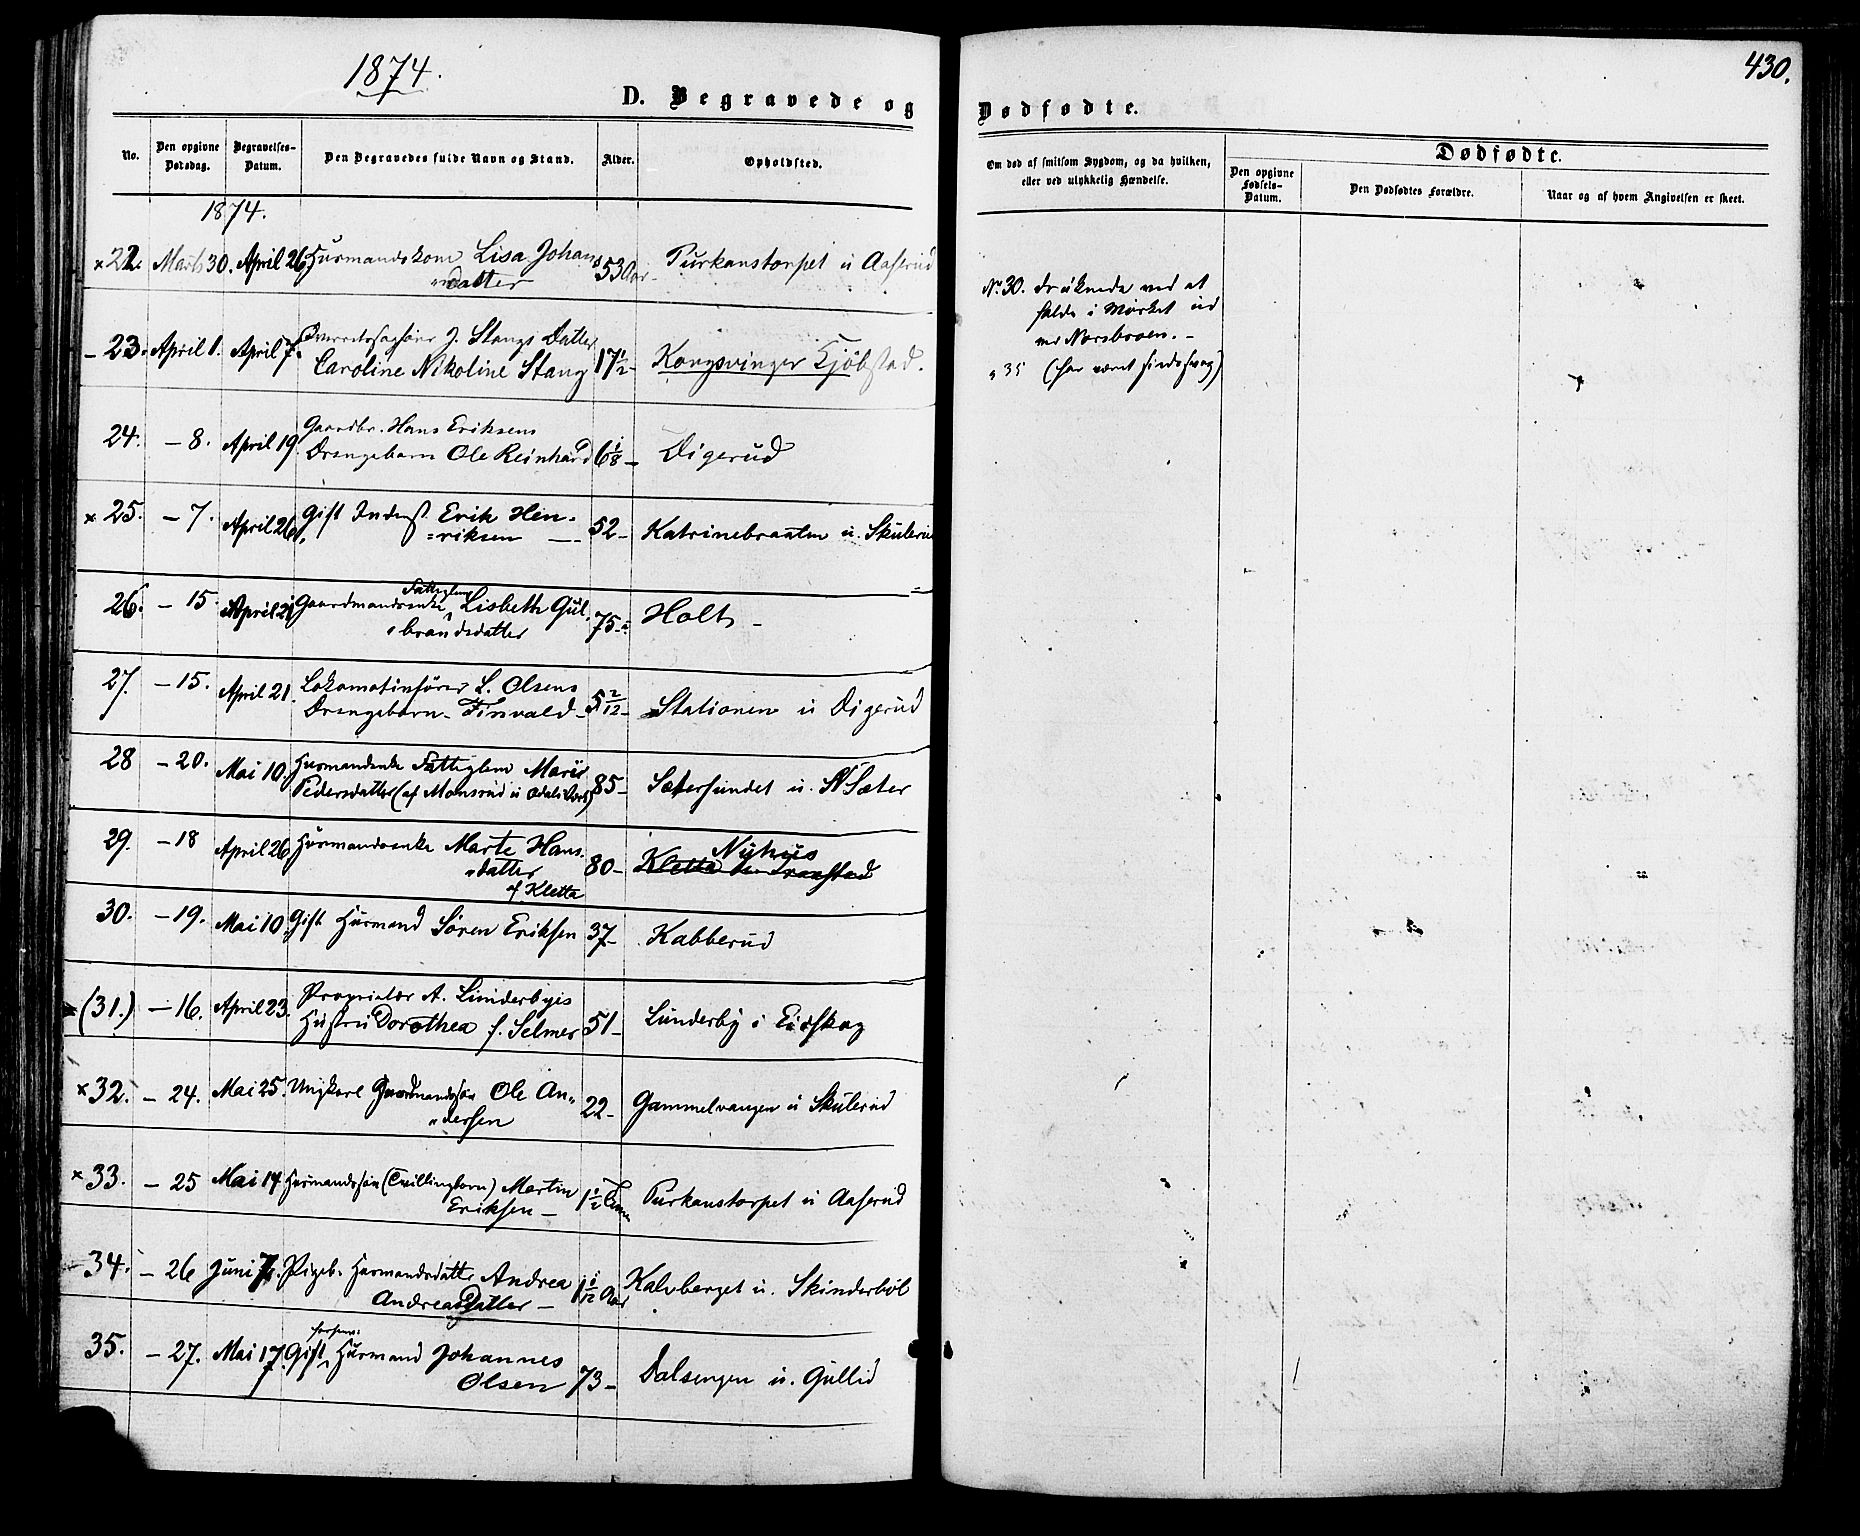 1874.
D. Begravede og
No.
Den opgivne Dødsdag.
Begravelses-Datum.
Den Begravedes fulde Navn og Stand.
Alder.
Opholdsted.
1874.
× 22. Marts 30. April 26 Huusmandskone Lisa Johans 53 Aar Purkanstorpet u Aaserud
"datter
– 23. April 1. April 7. J. Stangs Datter
Caroline Nikoline Stang 17 1/2 – Kongsvinger Kjøbstad.
24. – 8. April 19. Gaardbr. Hans Eriksens
Drengebarn Ole Reinhard 6 1/8 – Digerud
× 25. – 7. April 26. Gift Inderst Erik Hen= 52 – Katrinebraaten u. Skulerud
=riksen
26. – 15. April 21 Gaardmandsenke Fattiglem Lisbeth Gul 75 – Holt –
"brandsdatter
27. – 15. April 21. Lokomotivfører L. Olsens
Drengebarn – Finvald – 5 2/12 – Stationen u Digerud
28 – 20. Mai 10. Huusmandsenke Fattiglem Marie
Pedersdatter (af Monsrud u Odals Verk) 85 – Sætersundet u. N Sæter
29. – 18 April 26 Huusmandsenke Marte Hans= 80 – Nyhus
"datter Kletta
af Kletta
30. – 19. Mai 10. Gift Huusmand Søren Eriksen 37 – Kabberud
(31.) – 16. April 23. Proprietær A. Lunderbyes
Hustru Dorothea f. Selmer 51 – Lunderby i Eidskog
× 32. – 24. Mai 25. Ungkarl Gaardmandssøn Ole An" 22 – Gammelvangen u Skulerud
"dersen
× 33. – 25 Mai 14 Huusmandssøn (Tvillingbarn) Martin 1 1/2 Time Purkanstorpet u Aaserud
Eriksen –
– 34. – 26 Juni 7. Pigeb. Huusmandsdatter Andrea 1 1/12 Aar Kalvberget u. Skinderbøl
AndreasDatter –
35. – 27. Mai 17. Gift Huusmand Johannes 73 – Dalsengen u. Gullid
Olsen
430.
Dødfødte.
Om død af smitsom Sygdom, og da hvilken,
eller ved ulykkelig Hændelse.
Dødfødte.
Den opgivne Fødsels-Datum.
Den Dødfødtes Forældre.
Naar og af hvem Angivelsen er skeet.
No 30. druknede ved at
falde i Mørket ud
ved Norsbroen. –
" 35 (har været sindssvag)